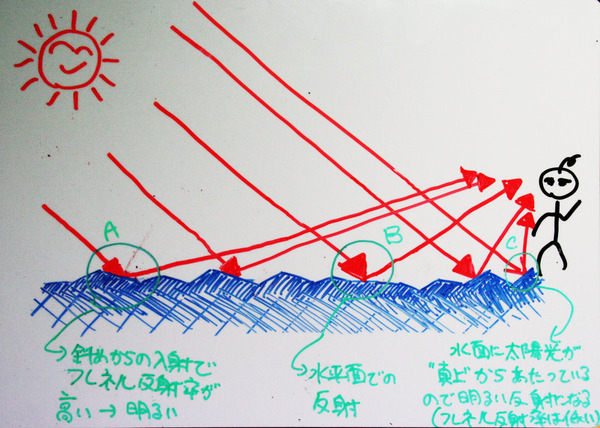 A
B
C
斜めからの入射で
フレネル反射率が
高い → 明るい
水平面での
反射
水面に太陽光が
"真上"からあたっている
ので明るい反射になる
(フレネル反射率は低い)